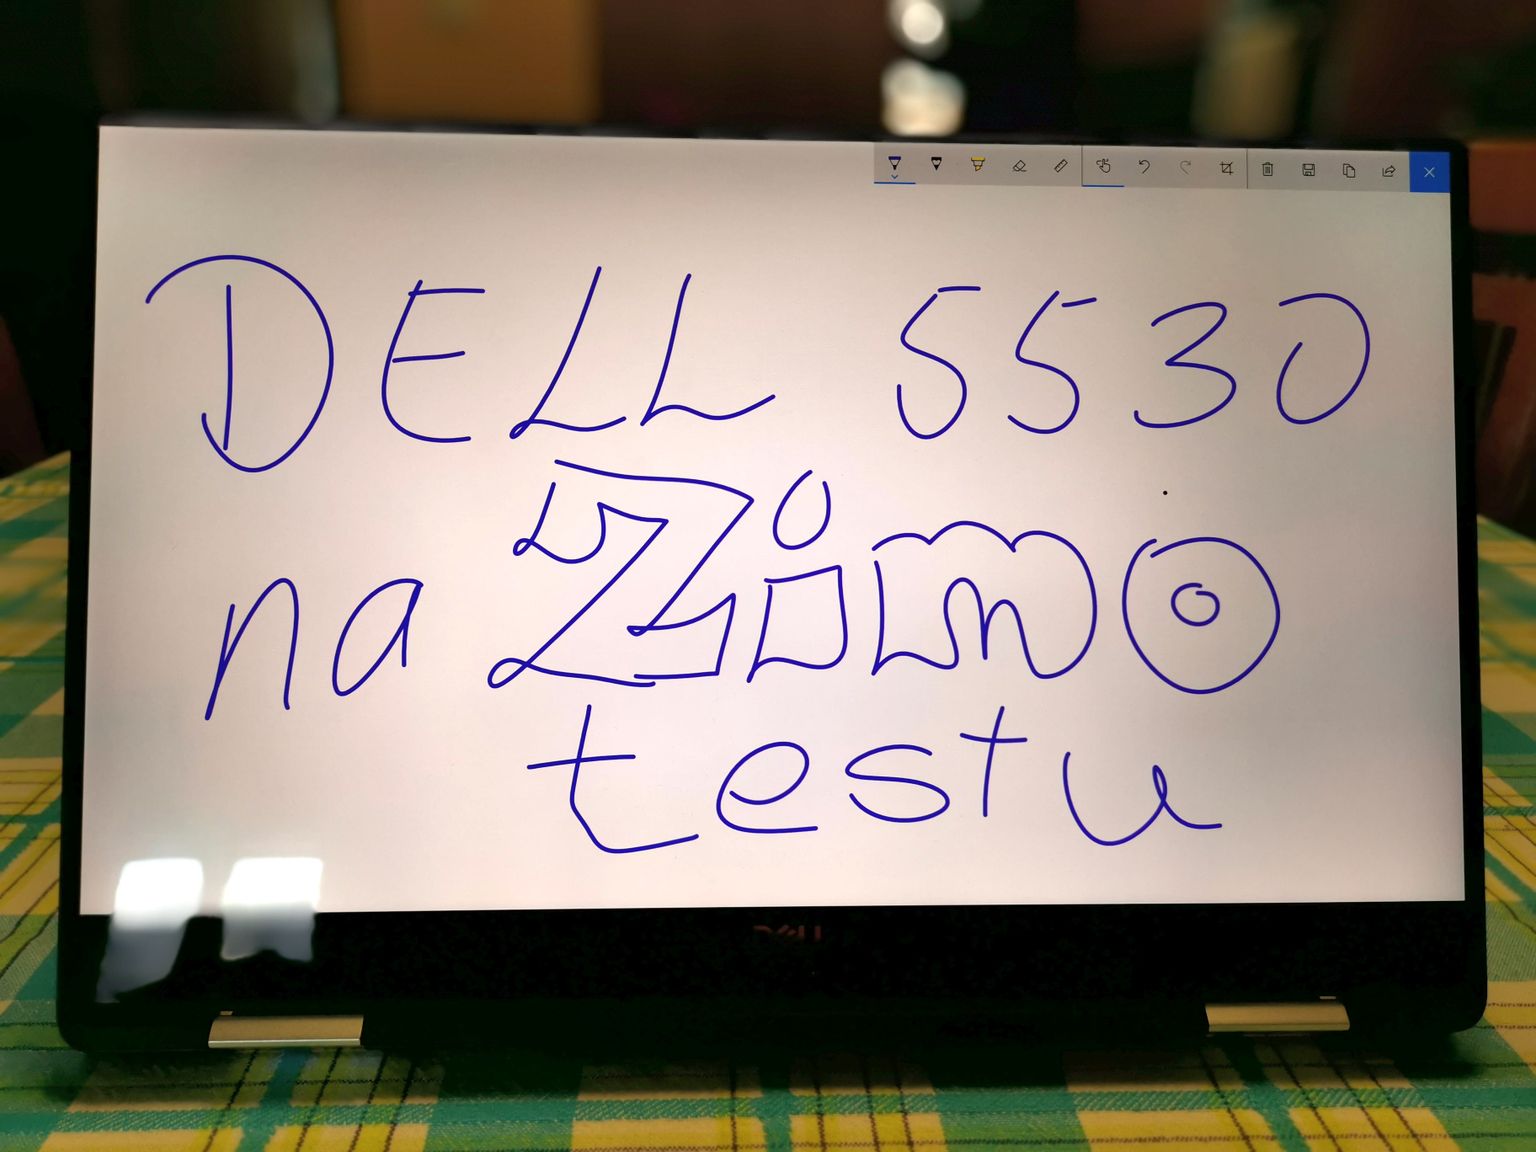 DELL 5530
na Zimo
testu
DELL